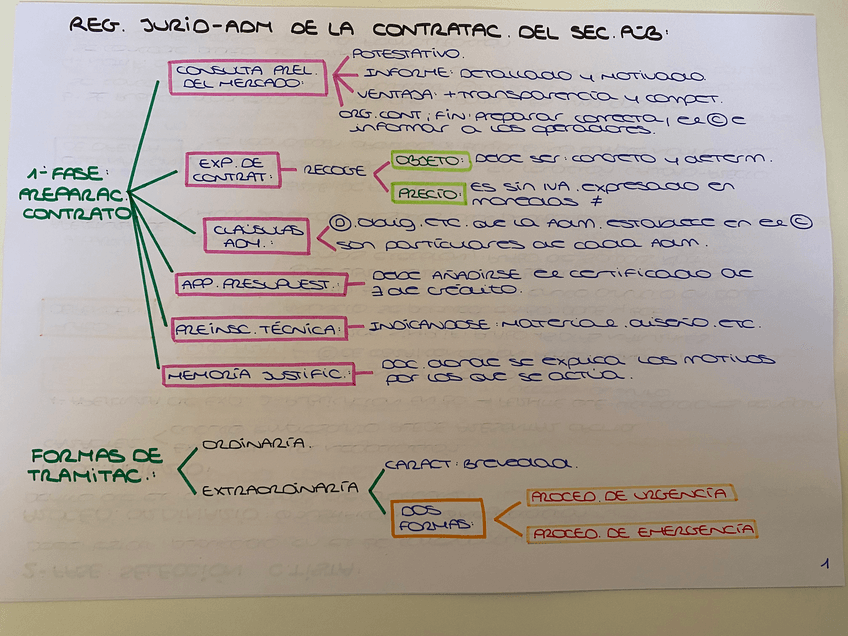 REG. JURID-ADM DE LA CONTRATAC. DEL SEC. PÚB:
1ª FASE:
PREPARAC.
CONTRATO
CONSULTA PREL.
DEL MERCADO:
POTESTATIVO.
INFORME: DETALLADO y MOTIVADO.
VENTAJA: + transparencia y compet.
ORG. CONT, FIN: Preparar correcta, el © e
informar a los operadores.
EXP. DE
CONTRAT:
RECOGE
OBJETO: DEBE SER: CONCRETO y DETERM.
PRECIO: ES SIN IVA. expresado en
monedas ≠
CLÁUSULAS
ADM.:
Ⓓ. oblig. ETC. que la Adm. establece en el ©
son particulares de cada Adm.
APP. PRESUPUEST.:
DEBE AÑADIRSE el certificado de
∃ de crédito.
PREINSC. TÉCNICA:
INDICANDOSE: material. diseño. etc.
MEMORIA JUSTIFIC.:
DOC. donde se explica los motivos
por los que se actúa.
FORMAS DE
TRAMITAC.:
ORDINARIA.
EXTRAORDINARIA
CARACT: Brevedad.
DOS
FORMAS:
PROCED. DE URGENCIA
PROCED. DE EMERGENCIA
1